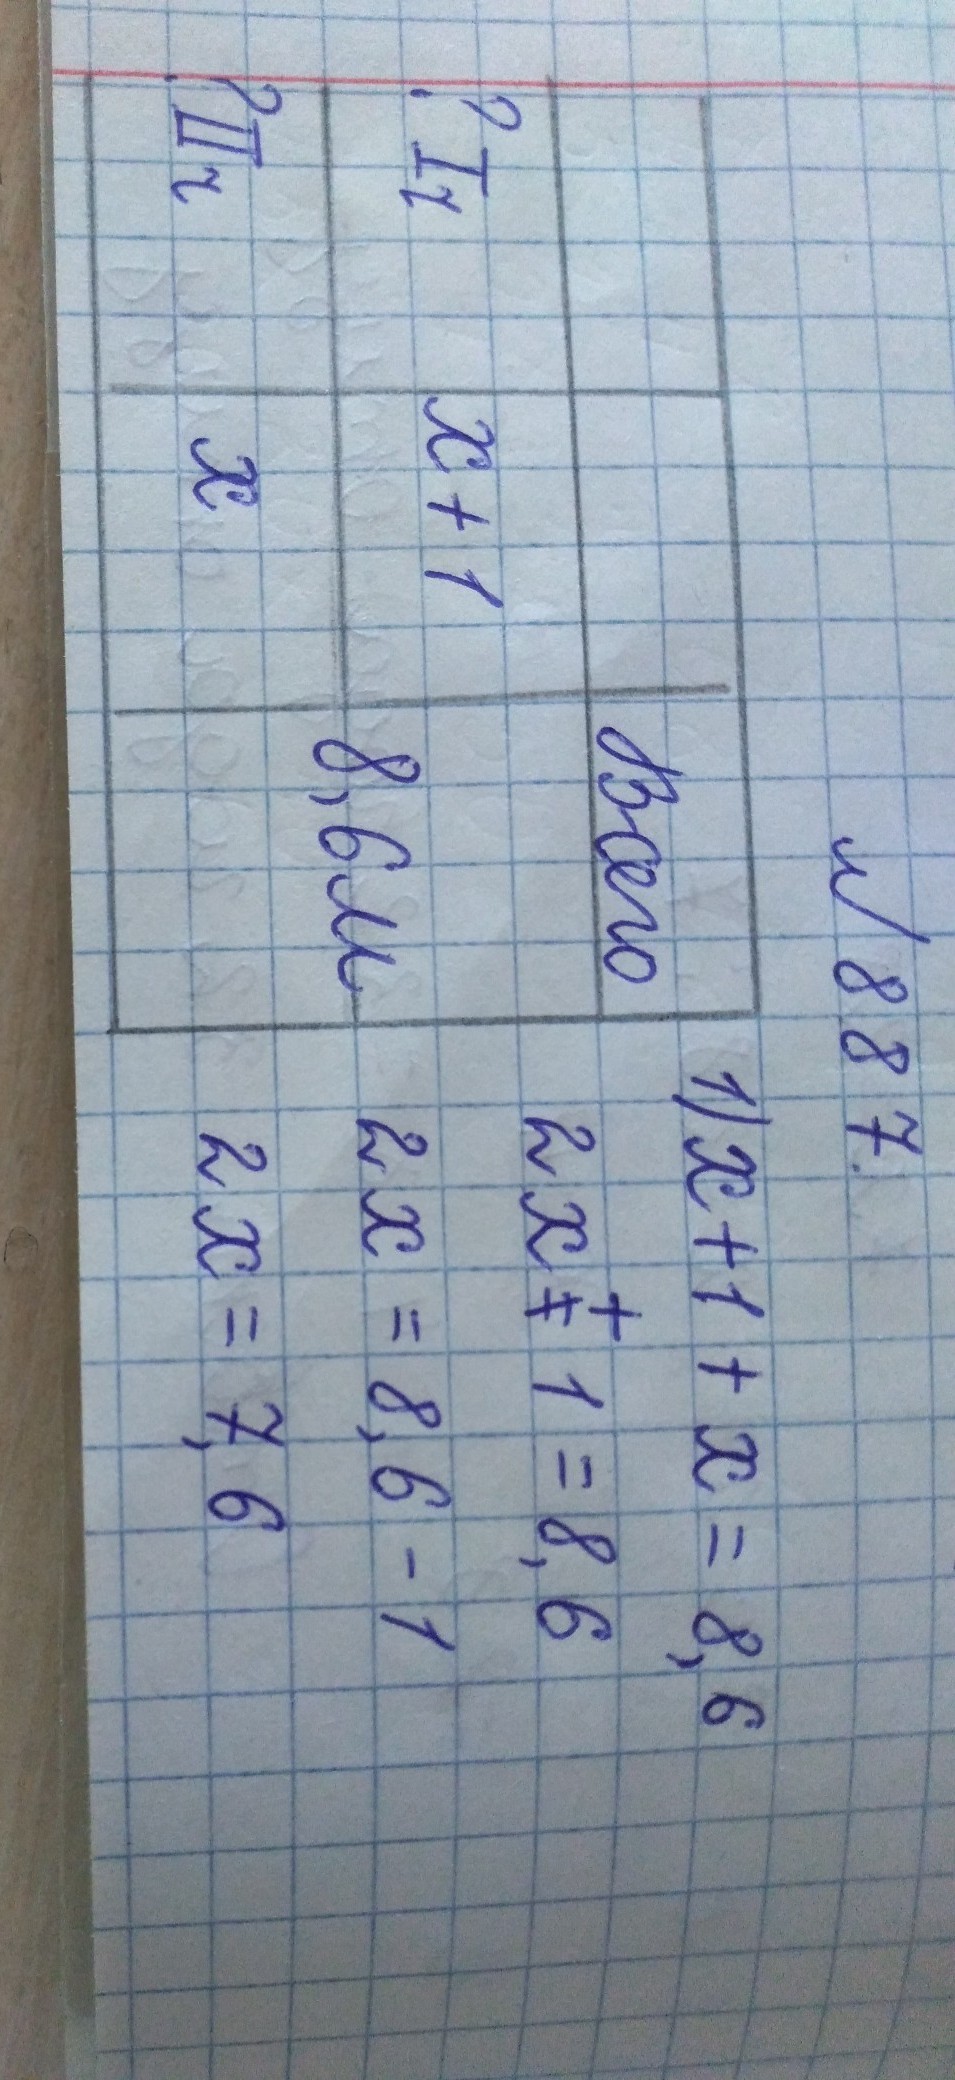 № 887.
Всего
? I ч
x + 1
8,6 м
? II ч
x
1) x + 1 + x = 8,6
2x + 1 = 8,6
2x = 8,6 - 1
2x = 7,6